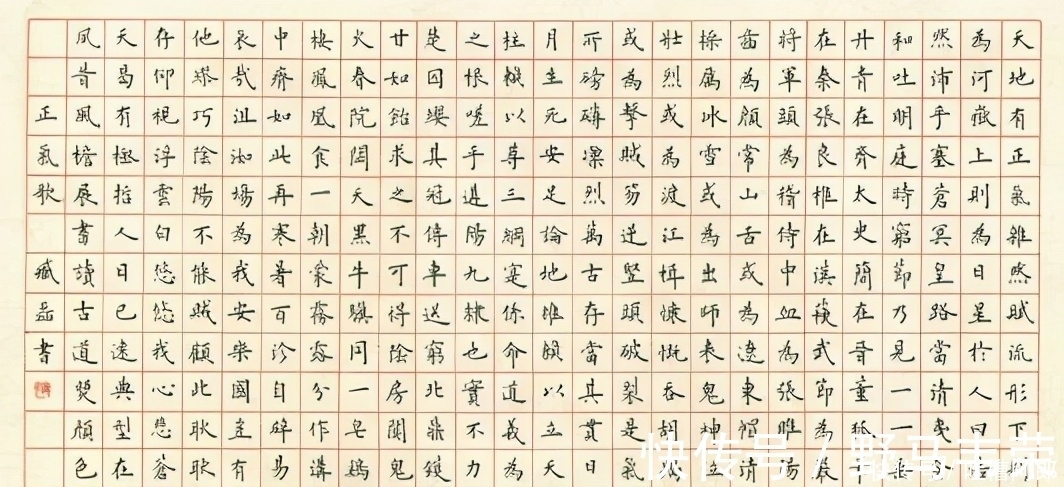 天地有正氣雜然賦流形下
為河嶽上則為日星於人曰
然沛乎塞蒼冥皇路當清夷
和吐明庭時窮節乃見一一
丹青在齊太史簡在晉董狐
在秦張良椎在漢蘇武節為
將軍頭為嵇侍中血為張睢
齒為顏常山舌或為遼東帽清
操厲冰雪或為出師表鬼神
壯烈或為渡江楫慷慨吞胡
或為擊賊笏逆豎頭破裂是氣
所磅礴凜烈萬古存當其貫日
月生死安足論地維賴以立天
柱賴以尊三綱寔係命道義為
之根嗟乎遘陽九隸也實不力
楚囚纓其冠傳車送窮北鼎鑊
甘如飴求之不可得陰房闃鬼
火春院閟天黑牛驥同一皂雞
棲鳳凰食一朝蒙霧露分作溝
中瘠如此再寒暑百沴自辟易
哀哉沮洳場為我安樂國豈有
他繆巧陰陽不能賊顧此耿耿
存仰視浮雲白悠悠我心悲蒼
天曷有極哲人日已遠典型在
夙昔風檐展書讀古道照顏色
正氣歌 臧磊書
快传号 / 野马丰荣